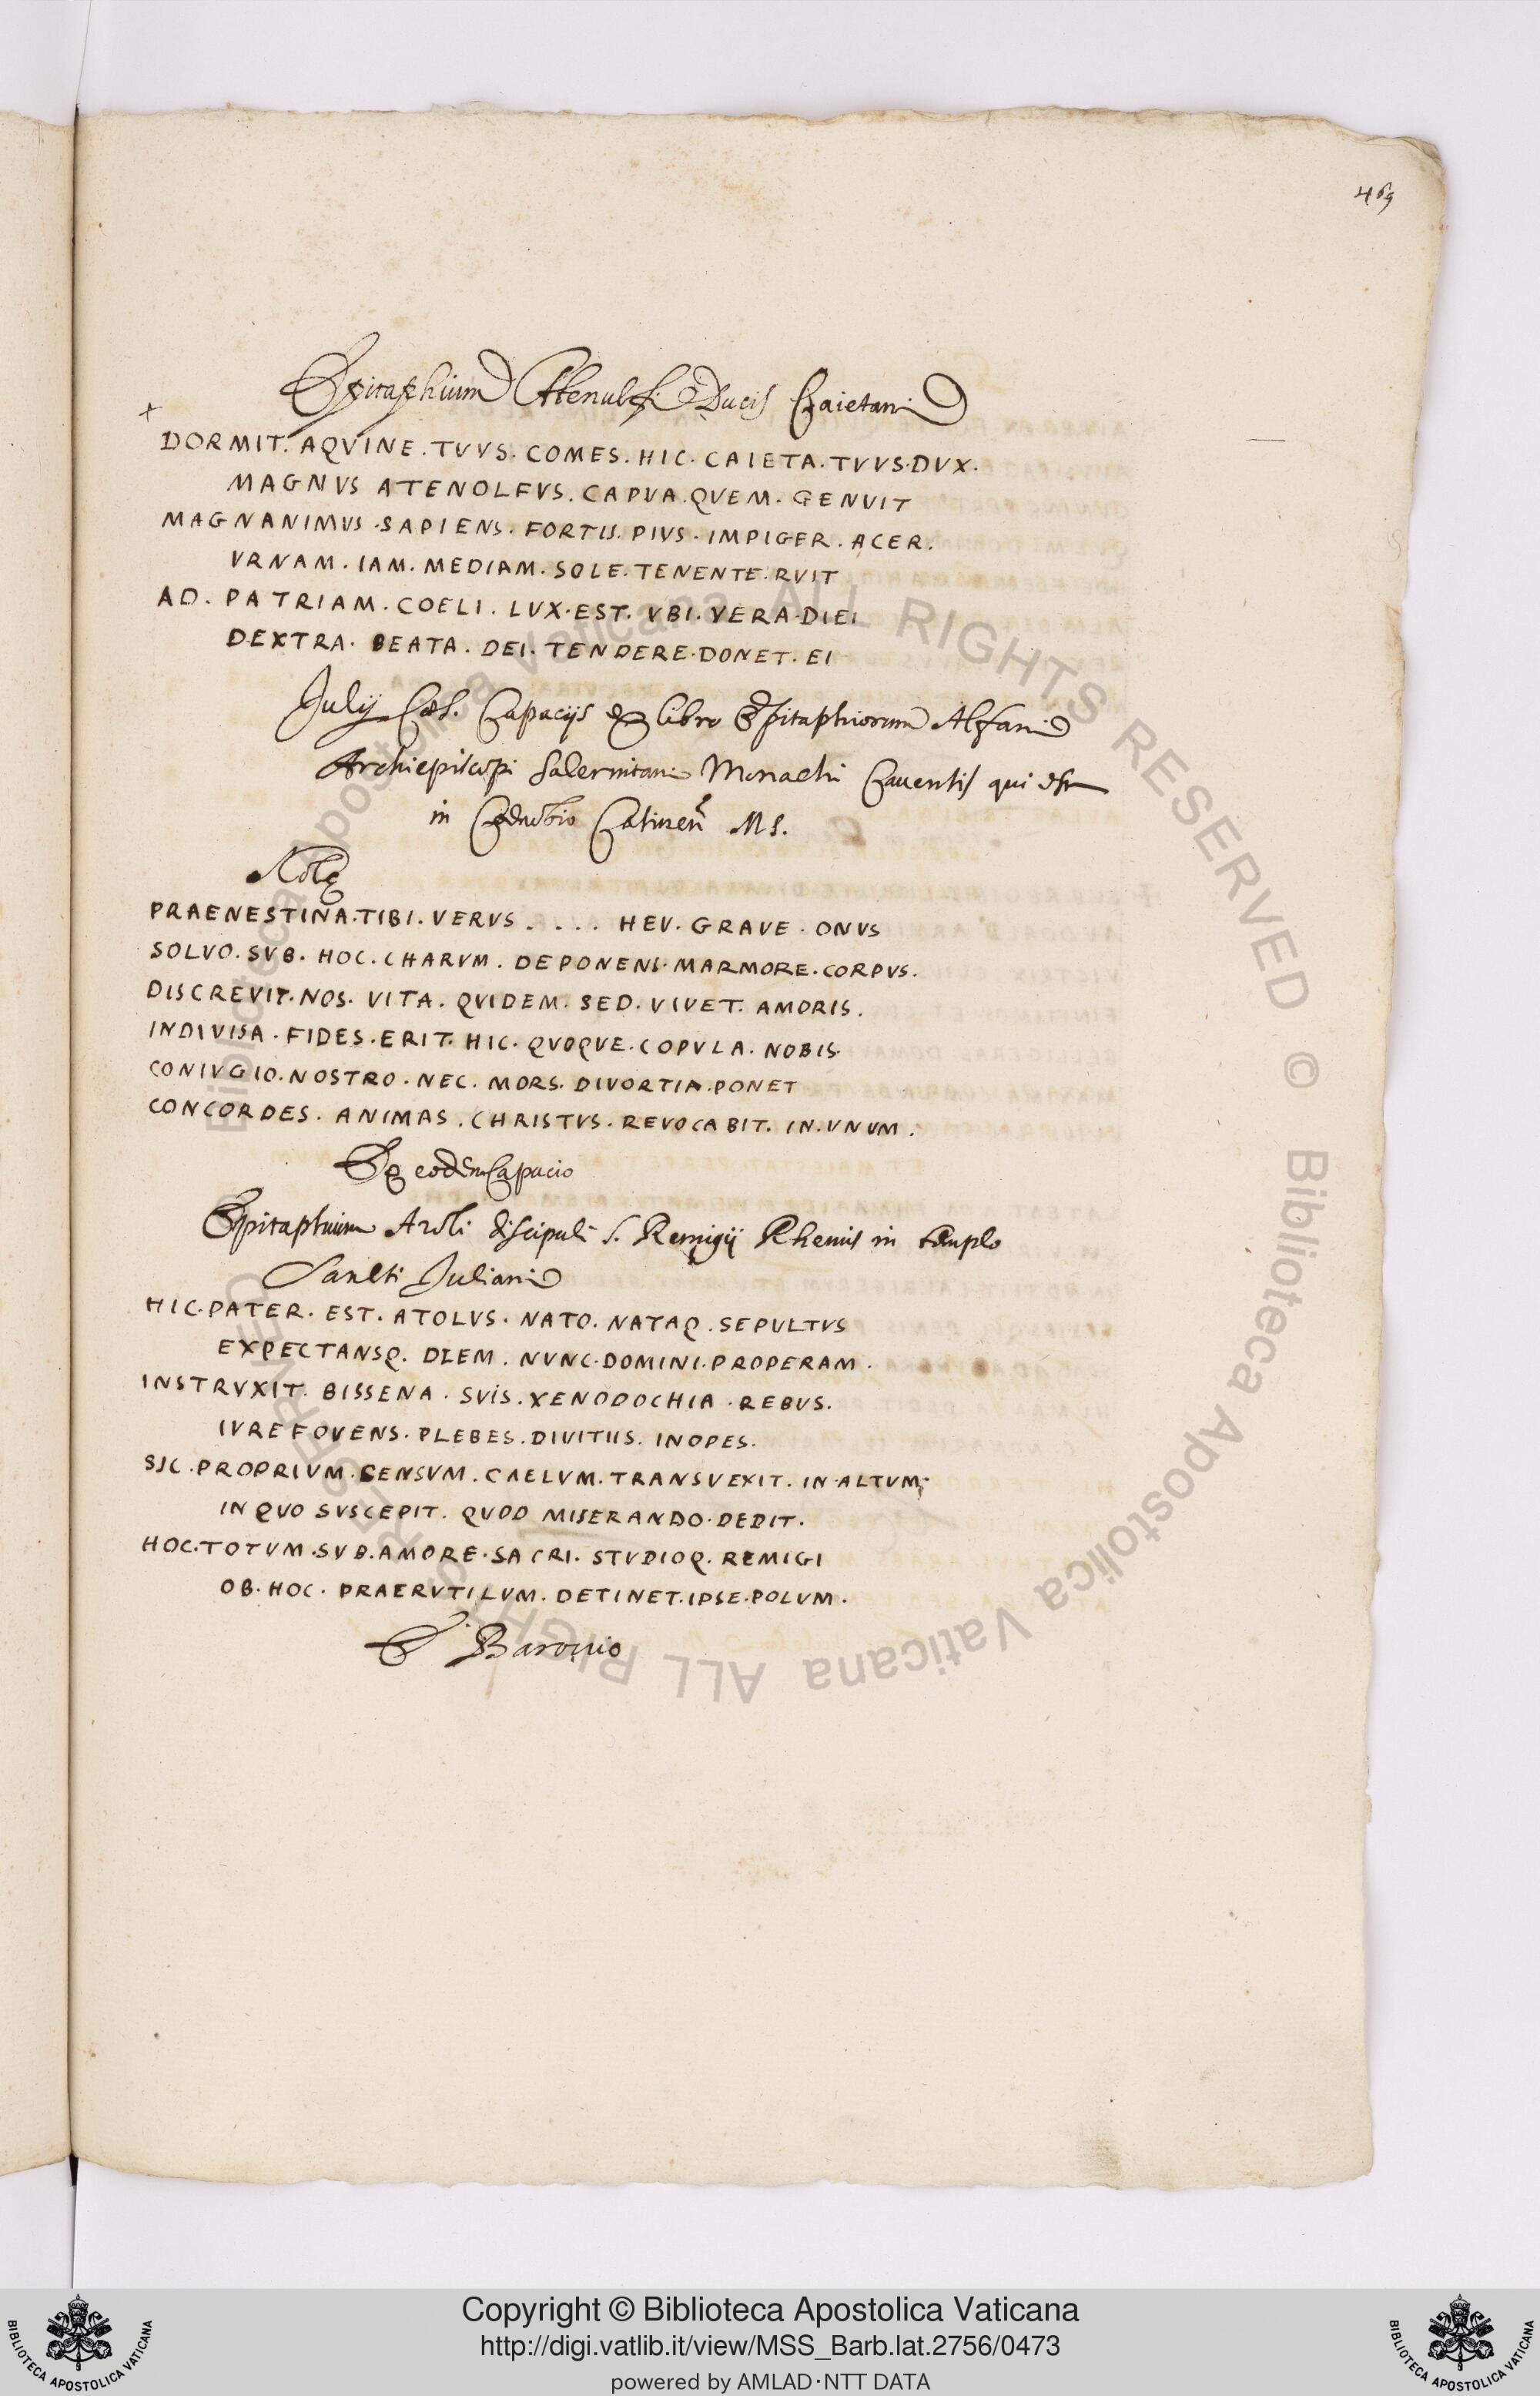 469
Epitaphium Atenulfi Ducis Caietani
+
DORMIT. AQVINE. TVVS. COMES. HIC. CAIETA. TVVS. DVX.
MAGNVS ATENOLFVS. CAPVA. QVEM. GENVIT
MAGNANIMVS. SAPIENS. FORTIS. PIVS. IMPIGER. ACER.
VRNAM. IAM. MEDIAM. SOLE. TENENTE. RVIT
AD. PATRIAM. COELI. LVX. EST. VBI. VERA. DIEI
DEXTRA. BEATA. DEI. TENDERE. DONET. EI
Julij Cæs. Capacijs ex libro Epitaphiorum Alfani
Archiepiscopi Salernitani Monachi Cauensis qui est
in Cœnobio MS.
Nolę
PRAENESTINA. TIBI. VERVS . . . . HEV. GRAVE. ONVS
SOLVO. SVB. HOC. CHARVM. DEPONENS. MARMORE. CORPVS.
DISCREVIT. NOS. VITA. QVIDEM. SED. VIVET. AMORIS.
INDIVISA. FIDES. ERIT. HIC. QVOQVE. COPVLA. NOBIS.
CONIVGIO. NOSTRO. NEC. MORS. DIVORTIA. PONET
CONCORDES. ANIMAS. CHRISTVS. REVOCABIT. IN. VNVM.
Ex eodem Capacio
Epitaphium Atoli discipuli S. Remigij Rhemis in templo
Sancti Juliani
HIC. PATER. EST. ATOLVS. NATO. NATAQ. SEPVLTVS
EXPECTANSQ. DIEM. NVNC. DOMINI. PROPERAM.
INSTRVXIT. BISSENA. SVIS. XENODOCHIA. REBVS.
IVRE FOVENS. PLEBES. DIVITIIS. INOPES.
SIC. PROPRIVM. CENSVM. CAELVM. TRANSVEXIT. IN. ALTVM;
IN QVO SVSCEPIT. QVOD MISERANDO. DEDIT.
HOC. TOTVM. SVB. AMORE. SACRI. STVDIOQ. REMIGI
OB. HOC. PRAERVTILVM. DETINET. IPSE. POLVM.
E Baronio
© Biblioteca Apostolica Vaticana ALL RIGHTS RESERVED © Biblioteca Apostolica Vaticana ALL RIGHTS RESERVED
BIBLIOTECA APOSTOLICA VATICANA
Copyright © Biblioteca Apostolica Vaticana
http://digi.vatlib.it/view/MSS_Barb.lat.2756/0473
powered by AMLAD·NTT DATA
BIBLIOTECA APOSTOLICA VATICANA